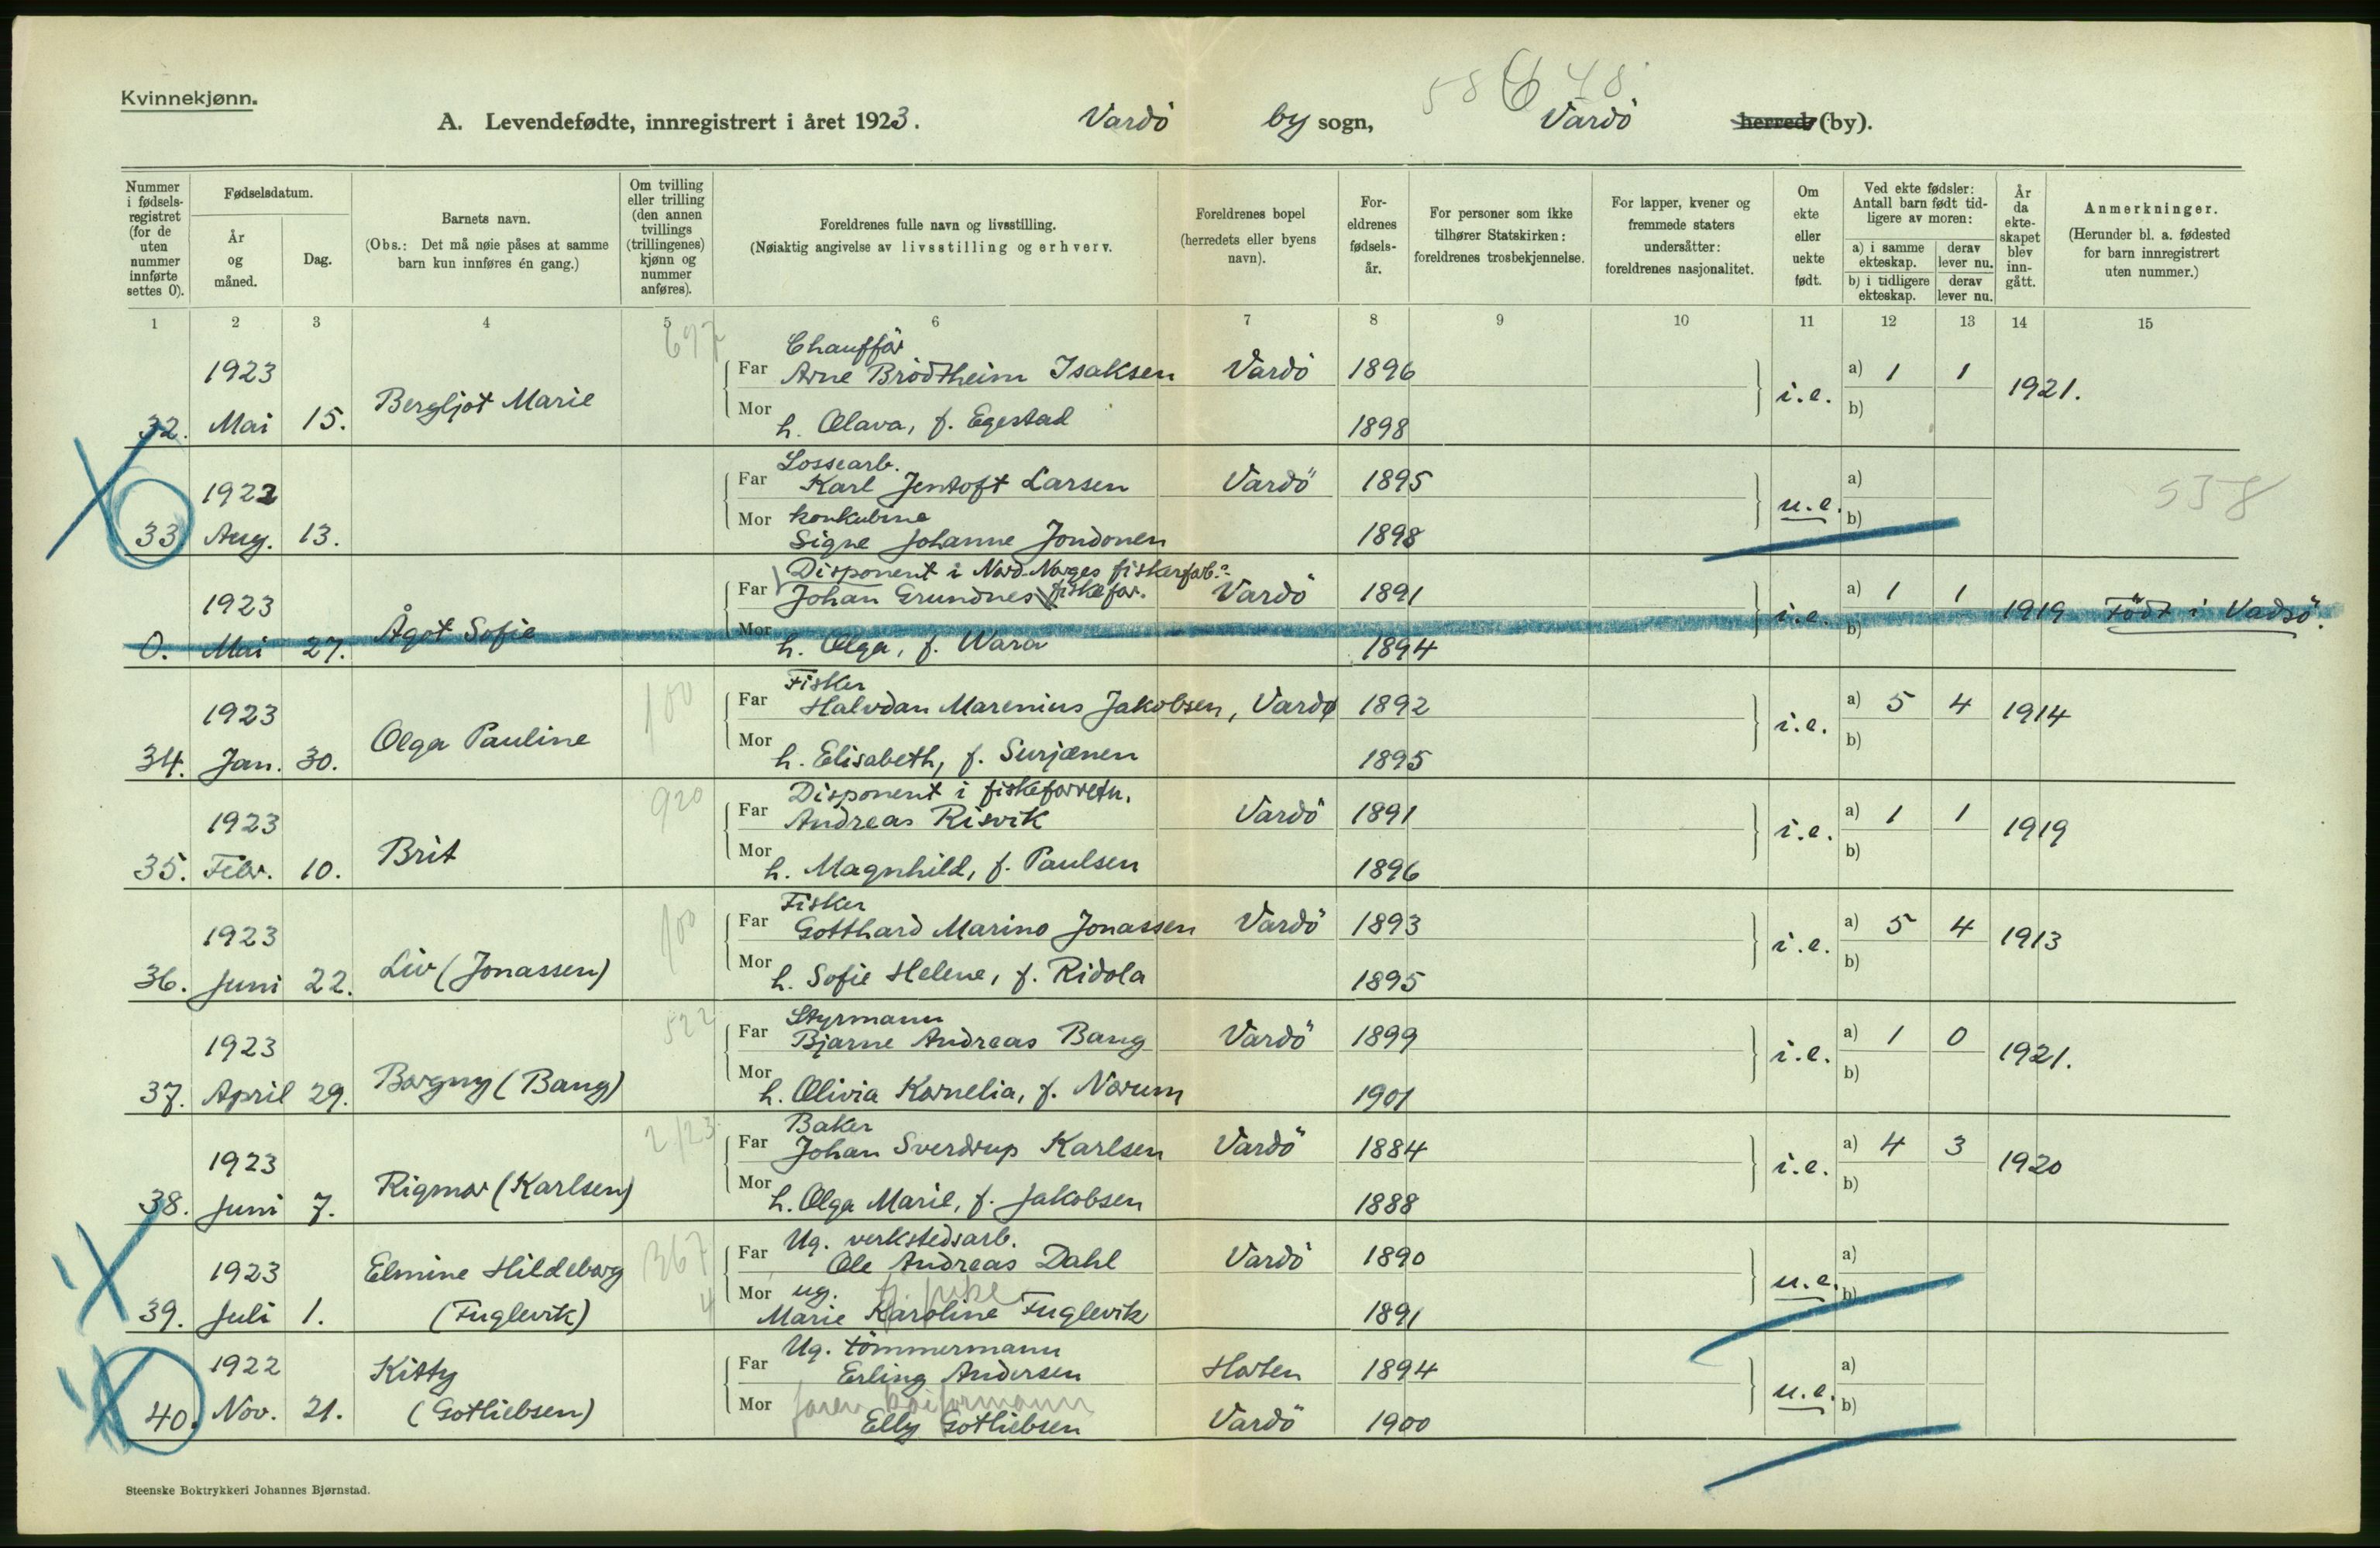 Kvinnekjønn.
A. Levendefødte, innregistrert i året 1923. Vardö by sogn, Vardö herred (by).
Nummer i fødselsregistret (for de uten nummer innførte settes 0).
Fødselsdatum.
År og måned.
Dag.
Barnets navn.
(Obs.: Det må nøie påses at samme barn kun innføres én gang.)
Om tvilling eller trilling (den annen tvillings (trillingenes) kjønn og nummer anføres).
Foreldrenes fulle navn og livsstilling.
(Nøiaktig angivelse av livsstilling og erhverv.
Foreldrenes bopel (herredets eller byens navn).
Foreldrenes fødselsår.
For personer som ikke tilhører Statskirken: foreldrenes trosbekjennelse.
For lapper, kvener og fremmede staters undersåtter: foreldrenes nasjonalitet.
Om ekte eller uekte født.
Ved ekte fødsler: Antall barn født tidligere av moren:
a) i samme ekteskap. derav lever nu.
b) i tidligere ekteskap. derav lever nu.
År da ekteskapet blev inngått.
Anmerkninger.
(Herunder bl. a. fødested for barn innregistrert uten nummer.)
1 2 3 4 5 6 7 8 9 10 11 12 13 14 15
697
Chaufför
1923 Far Arne Brödtheim Isaksen Vardö 1896 a) 1 1
32. Mai 15. Bergljot Marie i.e. 1921.
Mor h. Olava, f. Egestad 1898 b)
Lossearb.
1922 Far Karl Jentoft Larsen Vardö 1895 a) 538
33 Aug. 13. u.e. b)
Mor konkubine
Signe Johanne Jondonen 1898
Disponent i Nord-Norges fiskerforb.
1923 Far Johan Grundnes fiskefor. Vardö 1891 a) 1 1
0. Mai 27. Ågot Sofie i.e. b) 1919 Födt i Vadsö.
Mor h. Olga, f. Wara 1894
100
Fisker
1923 Far Halvdan Marenius Jakobsen, Vardø 1892 a) 5 4
34. Jan. 30. Olga Pauline i.e. 1914
Mor h. Elisabeth, f. Surjænen 1895 b)
920
Disponent i fiskeforretn.
1923 Far Andreas Risvik Vardö 1891 a) 1 1
35. Febr. 10. Brit i.e. 1919
Mor h. Magnhild, f. Paulsen 1896 b)
100
Fisker
1923 Far Gotthard Marino Jonassen Vardö 1893 a) 5 4
36. Juni 22. Liv (Jonassen) i.e. 1913
Mor h. Sofie Helene, f. Ridola 1895 b)
522
Styrmann
1923 Far Bjarne Andreas Bang Vardö 1899 a) 1 0
37. April 29. Borgny (Bang) i.e. 1921.
Mor h. Olivia Kornelia, f. Norum 1901 b)
Baker
1923 Far Johan Sverdrup Karlsen Vardö 1884 a) 4 3
38. Juni 7. Rigmor (Karlsen) i.e. 1920
Mor h. Olga Marie, f. Jakobsen 1888 b)
367
Ug. verkstedsarb.
1923 Elmine Hildeborg Far Ole Andreas Dahl Vardö 1890 a)
39. Juli 1. (Fuglevik) u.e. b)
Mor ug.
Marie Karoline Fuglevik 1891
Ug. tömmermann
1922 Kitty Far Erling Andersen Horten 1894 a)
40. Nov. 21. (Gotliebsen) u.e. b)
Mor Elly Gotliebsen Vardö 1900
Steenske Boktrykkeri Johannes Bjørnstad.